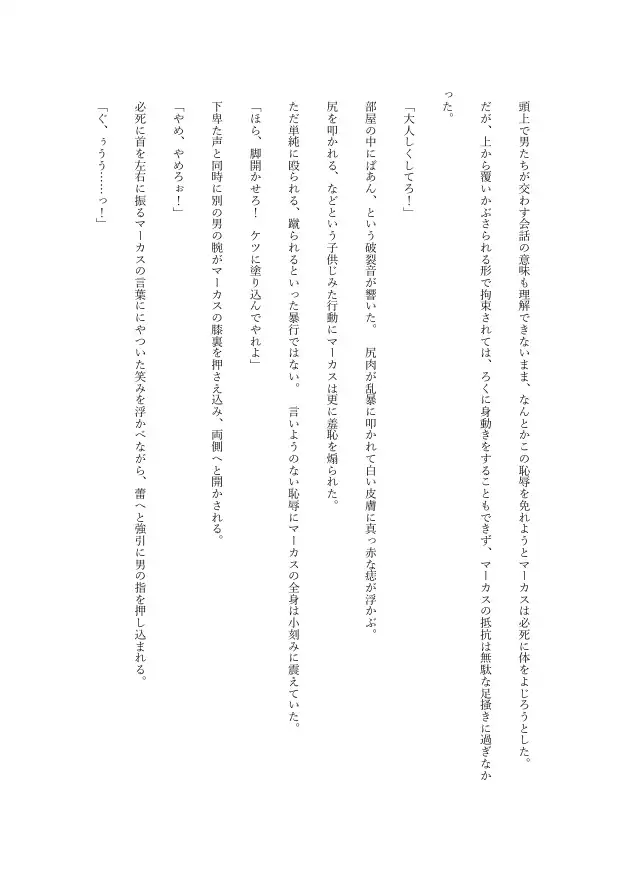 頭上で男たちが交わす会話の意味も理解できないまま、なんとかこの恥辱を免れようとマーカスは必死に体をよじろうとした。
だが、上から覆いかぶさられる形で拘束されては、ろくに身動きをすることもできず、マーカスの抵抗は無駄な足掻きに過ぎなか
った。
「大人しくしてろ！」
部屋の中にぱあん、という破裂音が響いた。　尻肉が乱暴に叩かれて白い皮膚に真っ赤な痣が浮かぶ。
尻を叩かれる、などという子供じみた行動にマーカスは更に羞恥を煽られた。
ただ単純に殴られる、蹴られるといった暴行ではない。　言いようのない恥辱にマーカスの全身は小刻みに震えていた。
「ほら、脚開かせろ！　ケツに塗り込んでやれよ」
下卑た声と同時に別の男の腕がマーカスの膝裏を押さえ込み、両側へと開かされる。
「やめ、やめろぉ！」
必死に首を左右に振るマーカスの言葉ににやついた笑みを浮かべながら、蕾へと強引に男の指を押し込まれる。
「ぐ、ぅうう……っ！」